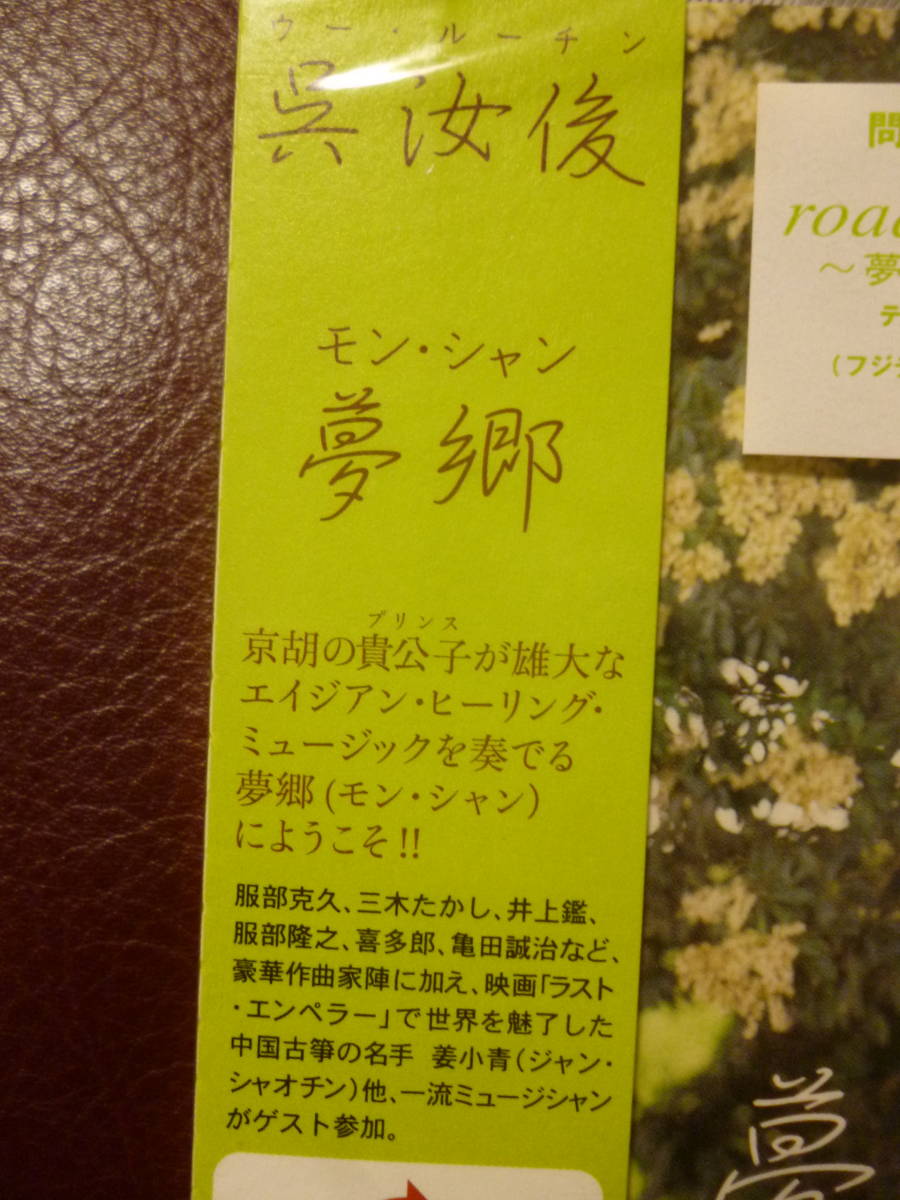 ウー・ルーチン
呉汝俊
モン・シャン
夢郷
プリンス
京胡の貴公子が雄大な
エイジアン・ヒーリング・
ミュージックを奏でる
夢郷(モン・シャン)
にようこそ!!
服部克久、三木たかし、井上鑑、
服部隆之、喜多郎、亀田誠治など、
豪華作曲家陣に加え、映画「ラスト
・エンペラー」で世界を魅了した
中国古箏の名手 姜小青(ジャン・
シャオチン)他、一流ミュージシャン
がゲスト参加。
問
roa
~夢
テ
(フジ
夢